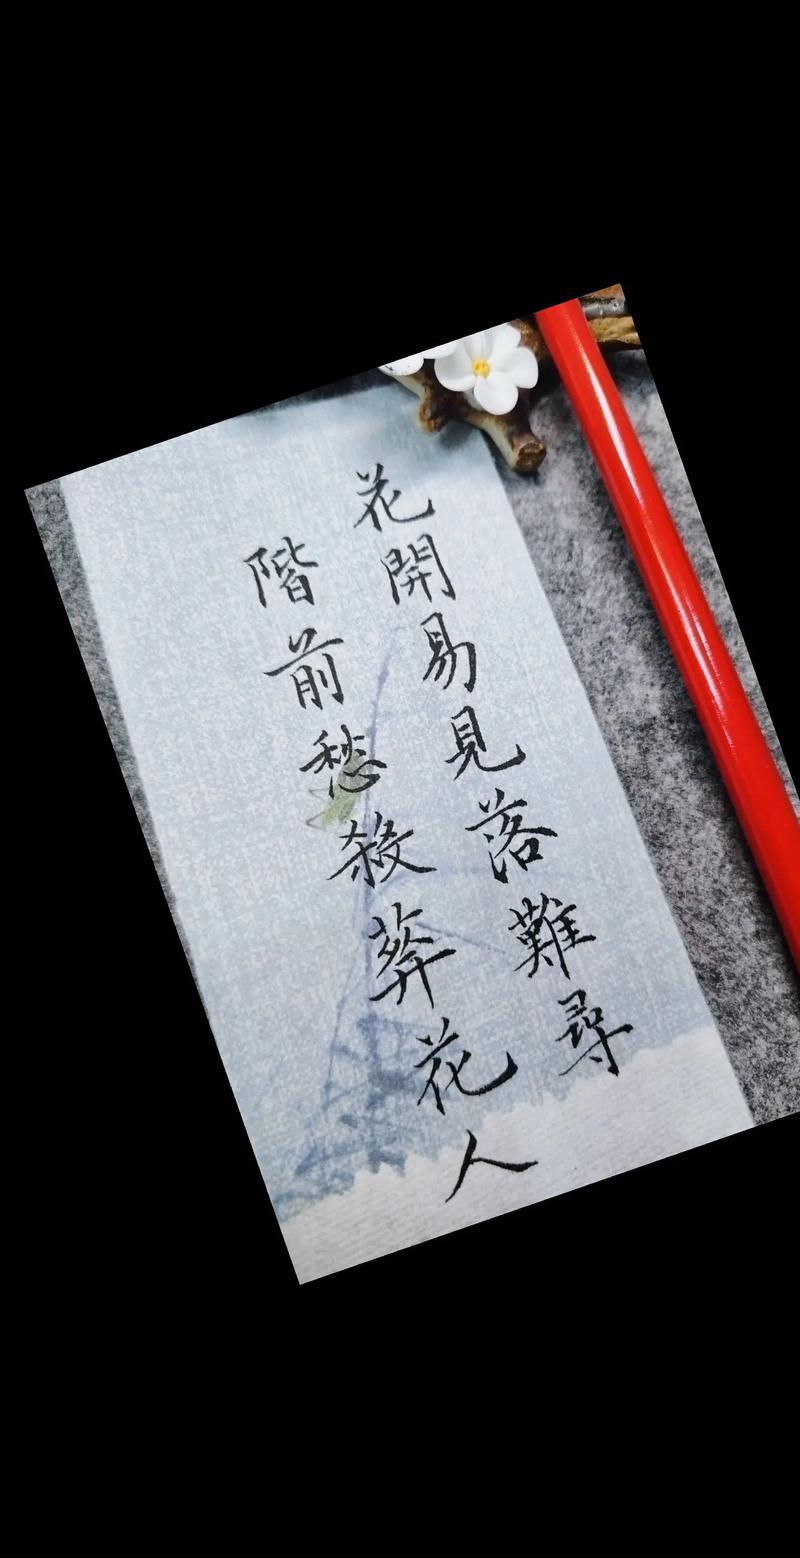 花開易見落難尋
階前愁殺葬花人